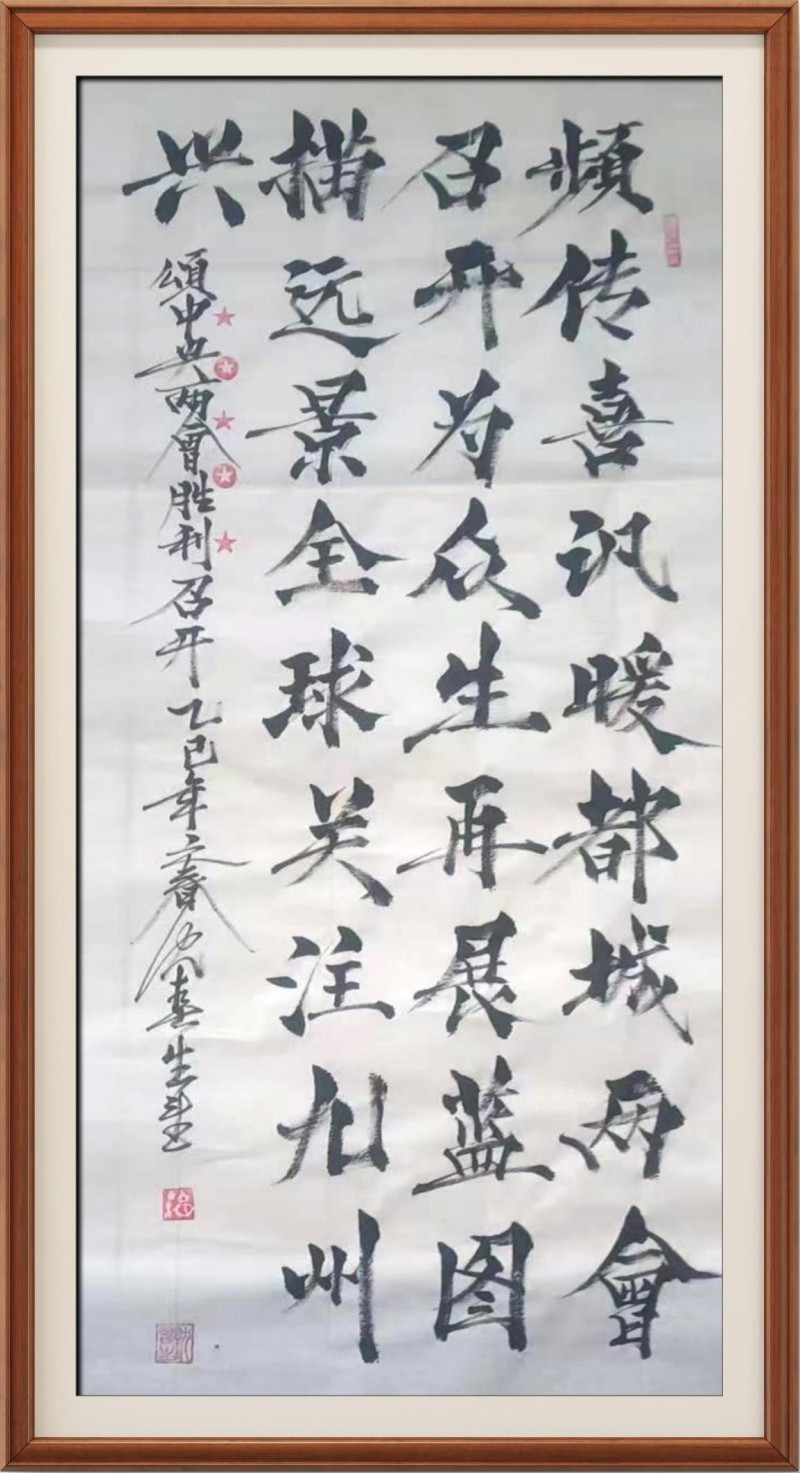 頻传喜讯暖都城两會
召开为众生再展蓝图
描远景全球关注九州
兴
頌中央两會胜利召开乙巳年立春喜生书